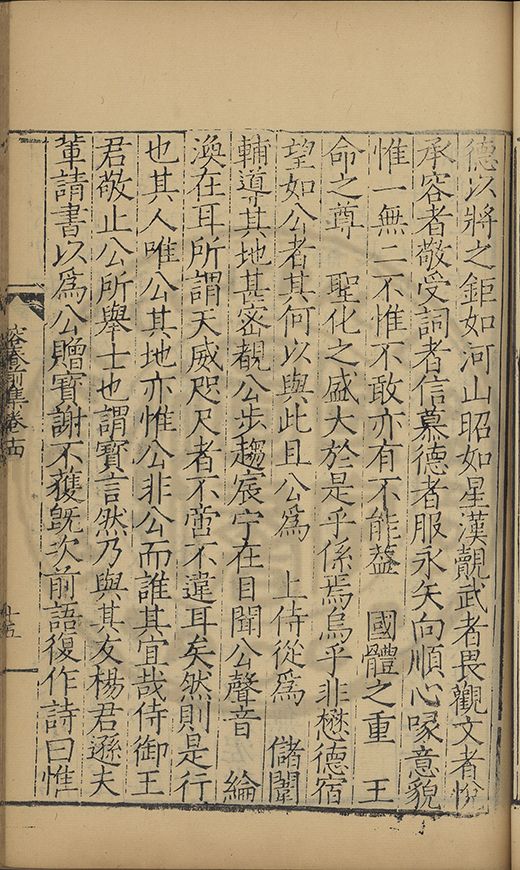 德以將之鉅如河山昭如星漢觀武者畏觀文者悅
承容者敬受詞者信慕德者服永矢向順心喙意貌
惟一無二不惟不敢亦有不能蓋　國體之重　王
命之尊　聖化之盛大於是乎係焉烏乎非懋德宿
望如公者其何以與此且公爲　上侍從爲　儲闈
輔導其地甚密觀公步趨宸宁在目聞公聲音　綸
渙在耳所謂天威咫尺者不啻不違耳矣然則是行
也其人唯公其地亦惟公非公而誰其宜哉侍御王
君敬止公所舉士也謂寳言然乃與其友楊君遜夫
軰請書以爲公贈寳謝不獲旣次前語復作詩曰惟
容春堂前集卷十四